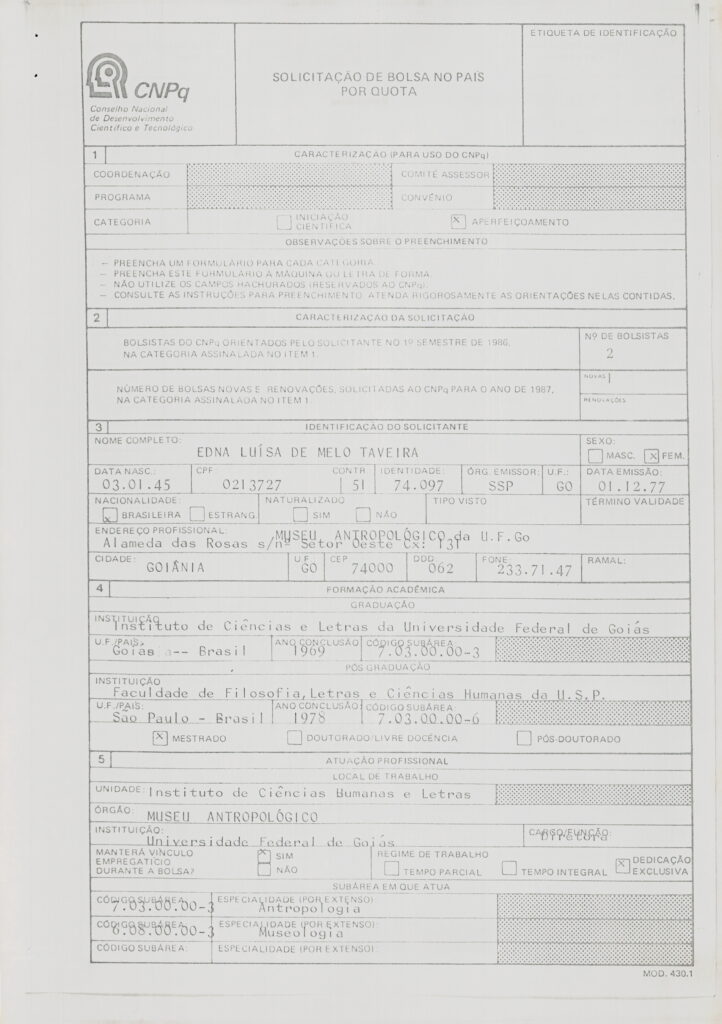 CNPq
Conselho Nacional
de Desenvolvimento
Científico e Tecnológico
SOLICITAÇÃO DE BOLSA NO PAÍS
POR QUOTA
ETIQUETA DE IDENTIFICAÇÃO
1 CARACTERIZAÇÃO (PARA USO DO CNPq)
COORDENAÇÃO COMITÊ ASSESSOR
PROGRAMA CONVÊNIO
CATEGORIA INICIAÇÃO CIENTÍFICA X APERFEIÇOAMENTO
OBSERVAÇÕES SOBRE O PREENCHIMENTO
– PREENCHA UM FORMULÁRIO PARA CADA CATEGORIA
– PREENCHA ESTE FORMULÁRIO À MÁQUINA OU LETRA DE FORMA.
– NÃO UTILIZE OS CAMPOS HACHURADOS (RESERVADOS AO CNPq).
– CONSULTE AS INSTRUÇÕES PARA PREENCHIMENTO. ATENDA RIGOROSAMENTE AS ORIENTAÇÕES NELAS CONTIDAS.
2 CARACTERIZAÇÃO DA SOLICITAÇÃO
BOLSISTAS DO CNPq ORIENTADOS PELO SOLICITANTE NO 1º SEMESTRE DE 1986,
NA CATEGORIA ASSINALADA NO ITEM 1.
Nº DE BOLSISTAS
2
NÚMERO DE BOLSAS NOVAS E RENOVAÇÕES, SOLICITADAS AO CNPq PARA O ANO DE 1987,
NA CATEGORIA ASSINALADA NO ITEM 1
NOVAS
RENOVAÇÕES
3 IDENTIFICAÇÃO DO SOLICITANTE
NOME COMPLETO: SEXO:
EDNA LUÍSA DE MELO TAVEIRA
MASC. X FEM.
DATA NASC.: CPF: CONTR IDENTIDADE: ÓRG. EMISSOR: U.F.: DATA EMISSÃO:
03.01.45 0213727 51 74.097 SSP GO 01.12.77
NACIONALIDADE: NATURALIZADO TIPO VISTO TÉRMINO VALIDADE
X BRASILEIRA ESTRANG. SIM NÃO
ENDEREÇO PROFISSIONAL: MUSEU ANTROPOLÓGICO da U.F.Go
Alameda das Rosas s/nº Setor Oeste Cx: 131
CIDADE: U.F. CEP DDD FONE: RAMAL:
GOIÂNIA GO 74000 062 233.71.47
4 FORMAÇÃO ACADÊMICA
GRADUAÇÃO
INSTITUIÇÃO
Instituto de Ciências e Letras da Universidade Federal de Goiás
U.F./PAÍS: ANO CONCLUSÃO CÓDIGO SUBÁREA
Goiás -- Brasil 1969 7.03.00.00-3
PÓS GRADUAÇÃO
INSTITUIÇÃO
Faculdade de Filosofia,Letras e Ciências Humanas da U.S.P.
U.F./PAÍS: ANO CONCLUSÃO CÓDIGO SUBÁREA:
São Paulo - Brasil 1978 7.03.00.00-6
X MESTRADO DOUTORADO/LIVRE DOCÊNCIA PÓS-DOUTORADO
5 ATUAÇÃO PROFISSIONAL
LOCAL DE TRABALHO
UNIDADE: Instituto de Ciências Humanas e Letras
ÓRGÃO: MUSEU ANTROPOLÓGICO
INSTITUIÇÃO: CARGO/FUNÇÃO:
Universidade Federal de Goiás Diretora
MANTERÁ VÍNCULO
EMPREGATÍCIO
DURANTE A BOLSA?
X SIM
NÃO
REGIME DE TRABALHO
TEMPO PARCIAL TEMPO INTEGRAL X DEDICAÇÃO EXCLUSIVA
SUBÁREA EM QUE ATUA
CÓDIGO SUBÁREA: ESPECIALIDADE (POR EXTENSO):
7.03.00.00-3 Antropologia
CÓDIGO SUBÁREA: ESPECIALIDADE (POR EXTENSO):
6.08.00.00-3 Museologia
CÓDIGO SUBÁREA: ESPECIALIDADE (POR EXTENSO):
MOD. 430.1